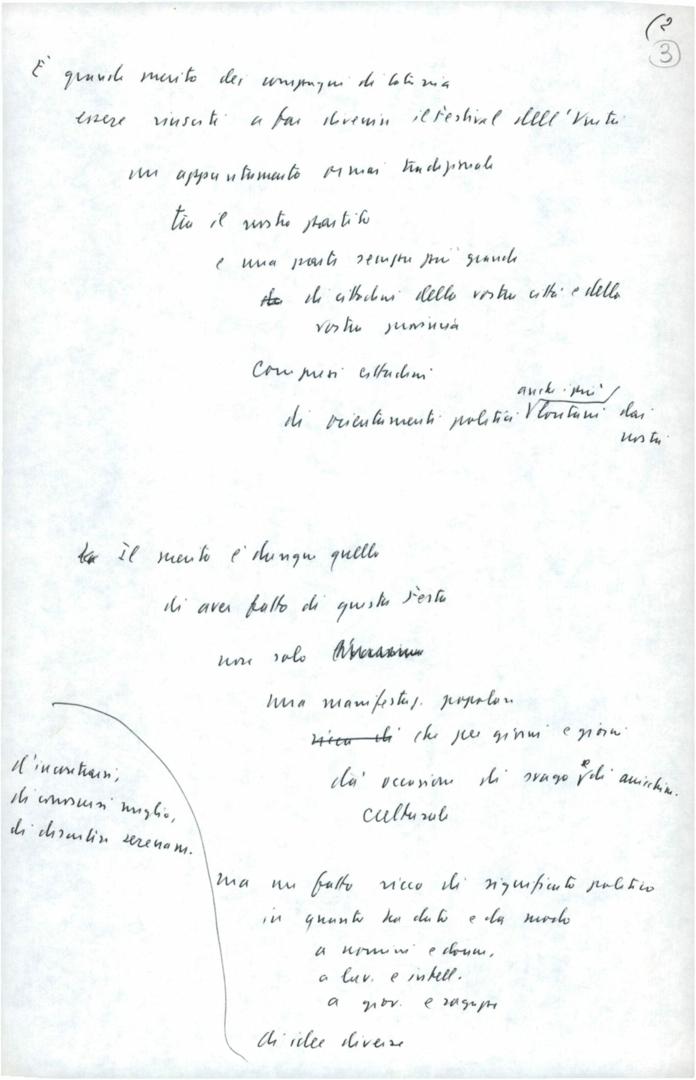 (2
3
È grande merito dei compagni di Catania
essere riusciti a far divenire il Festival dell'Unità
un appuntamento ormai tradizionale
tra il nostro partito
e una parte sempre più grande
di cittadini della vostra città e della
vostra provincia
Compresi cittadini
anche più
di orientamenti politici lontani dai
nostri
Il merito è dunque quello
di aver fatto di questa Festa
non solo
una manifestaz. popolare
ricca di che per giorni e giorni
dà occasione di svago e di arricchim.
culturale
ma un fatto ricco di significato politico
in quanto ha dato e dà modo
a uomini e donne,
a lav. e intell.
a giov. e ragazze
di idee diverse
d'incontrarsi,
di conoscersi meglio,
di discutere serenam.